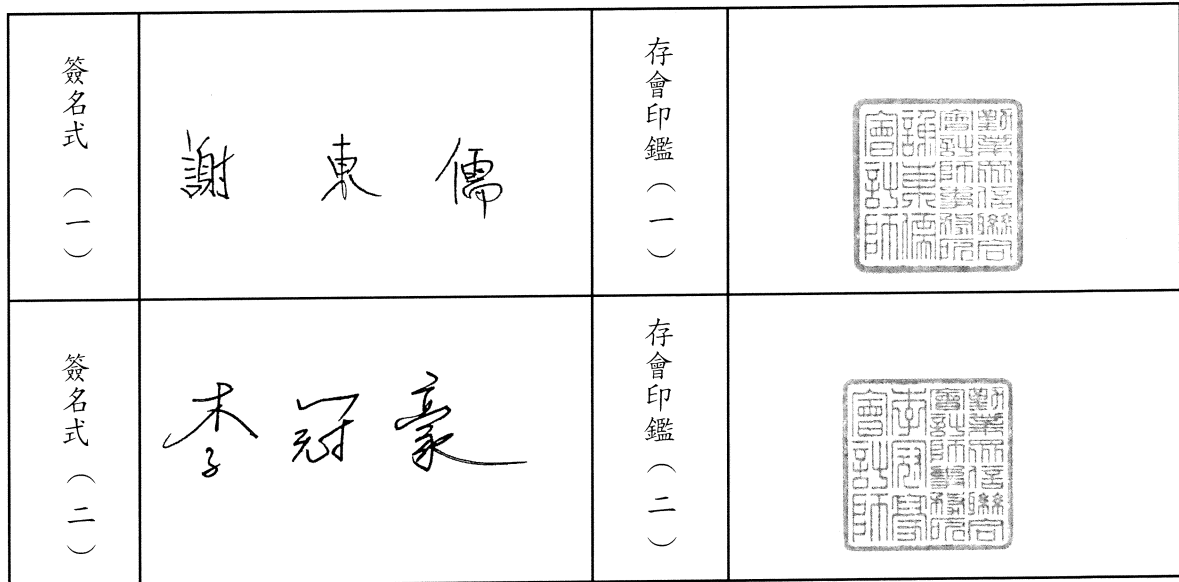 簽名式（一）
謝東儒
存會印鑑（一）
勤業眾信聯合
會計師事務所
謝東儒
會計師
簽名式（二）
李冠豪
存會印鑑（二）
勤業眾信聯合
會計師事務所
李冠豪
會計師